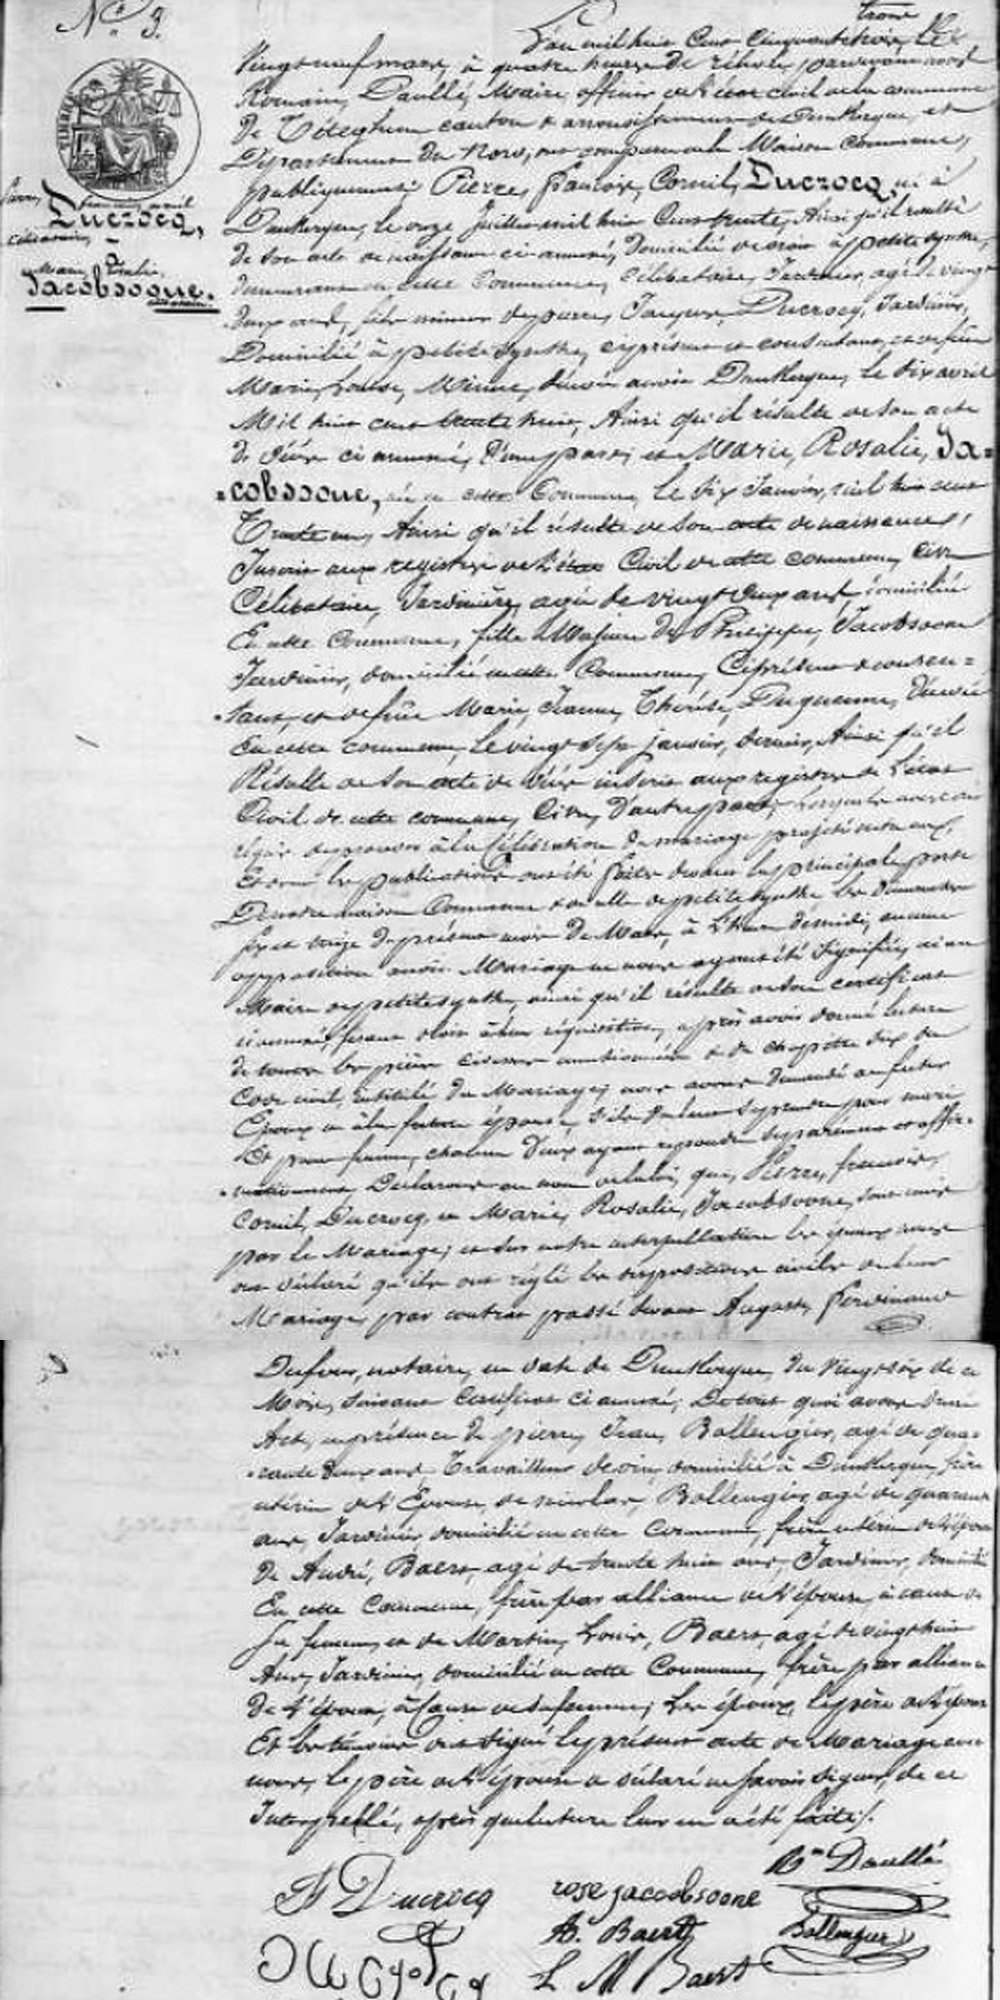 N° 3.
trois
L'an mil huit cent cinquante trois, le
Vingt neuf mars, à quatre heures de relevée, pardevant nous
Romain, Daullé, Maire, officier de l'état civil de la commune
de Téteghem canton & arrondissement de Dunkerque,
Département du Nord, sont comparus en la Maison Commune,
publiquement, Pierre, François, Cornil, Ducrocq, né à
Dunkerque, le onze Juillet mil huit Cent trente, Ainsi qu'il résulte
de son acte de naissance ci-annexé, domicilié de droit à petite synthe,
demeurant en cette Commune, Célibataire, Jardinier, agé de vingt
deux ans, fils mineur de pierre, Jacques, Ducrocq, Jardinier,
Domicilié à petite synthe, ci présent et consentant, et de feue
Marie, Louise, Minne, décédée à Dunkerque, le dix avril
Mil huit cent trente huit, Ainsi qu'il résulte de son acte
de décès ci annexé, d'une part; et Marie, Rosalie, Ja=
=cobsoone, née en cette Commune, le dix Janvier, mil huit cent
Trente un, Ainsi qu'il résulte de son acte de naissance,
Inscrit aux registres de l'état Civil de cette commune,
Célibataire, Jardinière, agée de vingt deux ans, domiciliée
En cette Commune, fille Majeure de Philippe, Jacobsoone
Jardinier, domicilié en cette Commune, Ci présent & consen=
=tant, et de feue Marie, Jeanne, Thérèse, Duquenne, décédée
En cette commune, le vingt sept janvier, dernier, Ainsi qu'il
Résulte de son acte de décès inscrit aux registres de l'état
Civil de cette commune, d'autre part; Lesquels nous ont
requis de procéder à la Célébration du mariage projeté entre eux,
Et dont les publications ont été faites devant la principale porte
De notre maison Commune & de celle de petite synthe les dimanches
six et treize du présent mois de Mars, à l'heure de midi, aucune
opposition audit Mariage ne nous ayant été signifiée, ni au
Maire de petite synthe, ainsi qu'il résulte de son certificat
ci annexé, faisant droit à leur réquisition, après avoir donné lecture
de toutes les pièces ci-dessus mentionnées & du chapitre six du
Code civil, intitulé du Mariage; nous avons demandé au futur
Époux et à la future épouse, s'ils veulent se prendre pour mari
Et pour femme, chacun d'eux ayant répondu séparément et affir=
=mativement, Déclarons au nom de la loi, que, Pierre, françois,
Cornil, Ducrocq, et Marie, Rosalie, Jacobsoone, sont unis
par le Mariage; et sur notre interpellation les époux nous
ont déclaré qu'ils ont réglé les dispositions civiles de leur
Mariage, par contrat passé devant Auguste, Ferdinand
françois cornil
Ducrocq,
célibataire,
Marie,
Jacobsoone.
Dufour, notaire, en date de Dunkerque, du vingt six de ce
Mois, suivant Certificat ci annexé; De tout quoi avons dressé
Acte, en présence de pierre, Jean, Bollengier, agé de qua=
=rante deux ans, Travailleur domicilié à Dunkerque, frère
utérin de l'Épouse, de nicolas, Bollengier, agé de quarante
ans, Jardinier, domicilié en cette Commune, frère utérin de l'épouse
de André, Baert, agé de trente huit ans, Jardinier, domicilié
En cette Commune, frère par alliance de l'épouse, à cause de
Sa femme, et de Martin, Louis, Baert, agé de vingt huit
Ans, Jardinier, domicilié en cette Commune, frère par alliance
de l'épouse, à Cause de sa femme; Les époux, le père de l'époux
Et les témoins ont signé le présent acte de Mariage avec
nous, le père de l'épouse a déclaré ne savoir signer, de ce
Interpellé, après que lecture leur en a été faite.
Rin Daullé
Ducrocq
rose jacobsoone
A. Baert
Bollengier
L M Baert